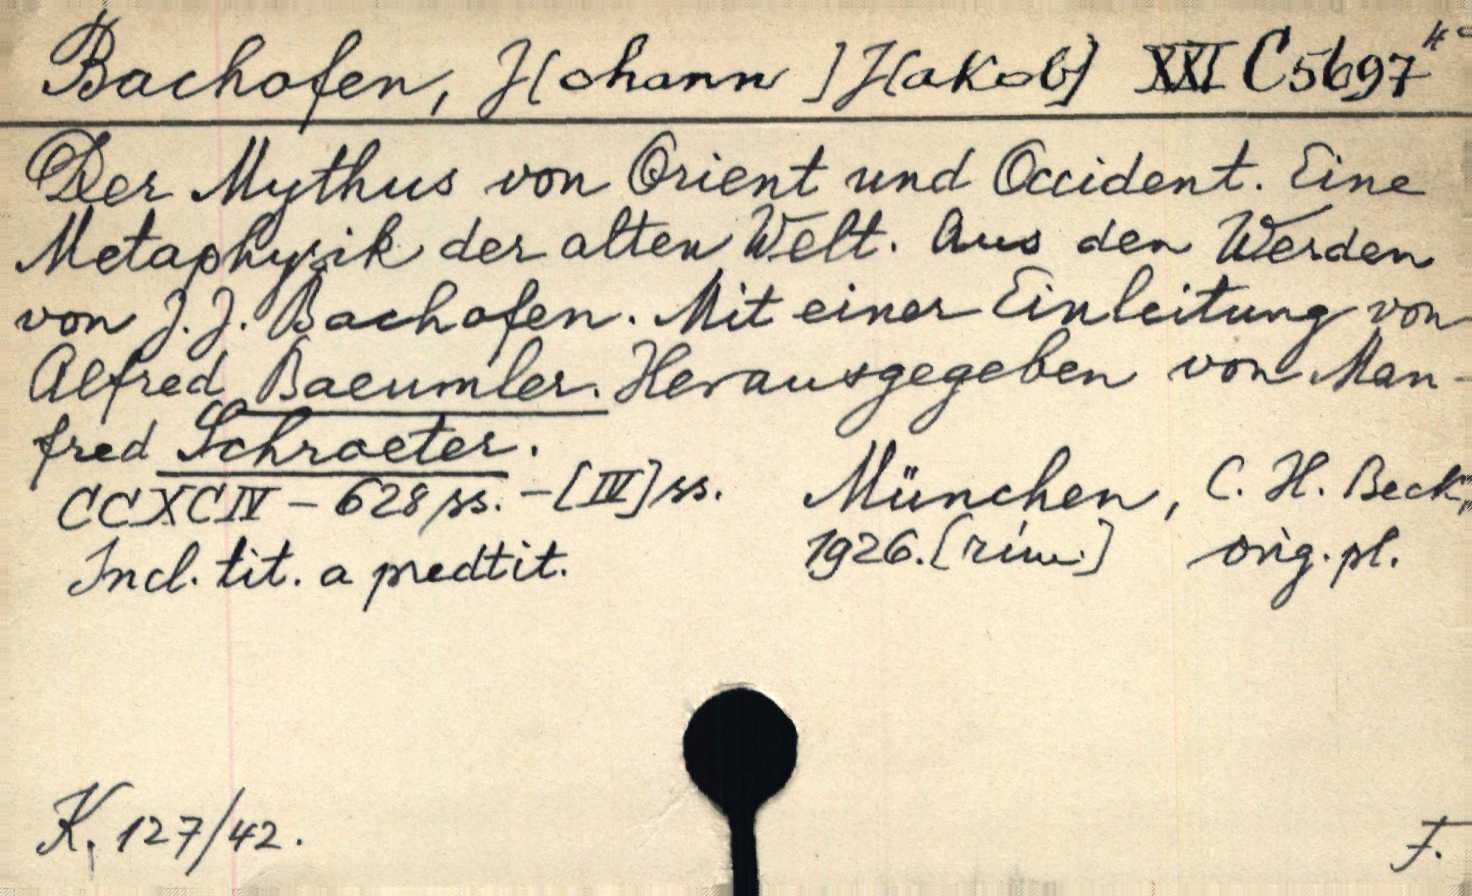 Bachofen, J[ohann] J[akob] XXI C 5697
Der Mythus von Orient und Occident. Eine
Metaphysik der alten Welt. Aus den Werden
von J. J. Bachofen. Mit einer Einleitung von
Alfred Baeumler. Herausgegeben von Man-
fred Schroeter.
CCXCIV - 628 ss. - [IV] ss. München, C. H. Beck,
Incl. tit. a predtit. 1926. [rím.] orig. pl.
K. 127/42. F.